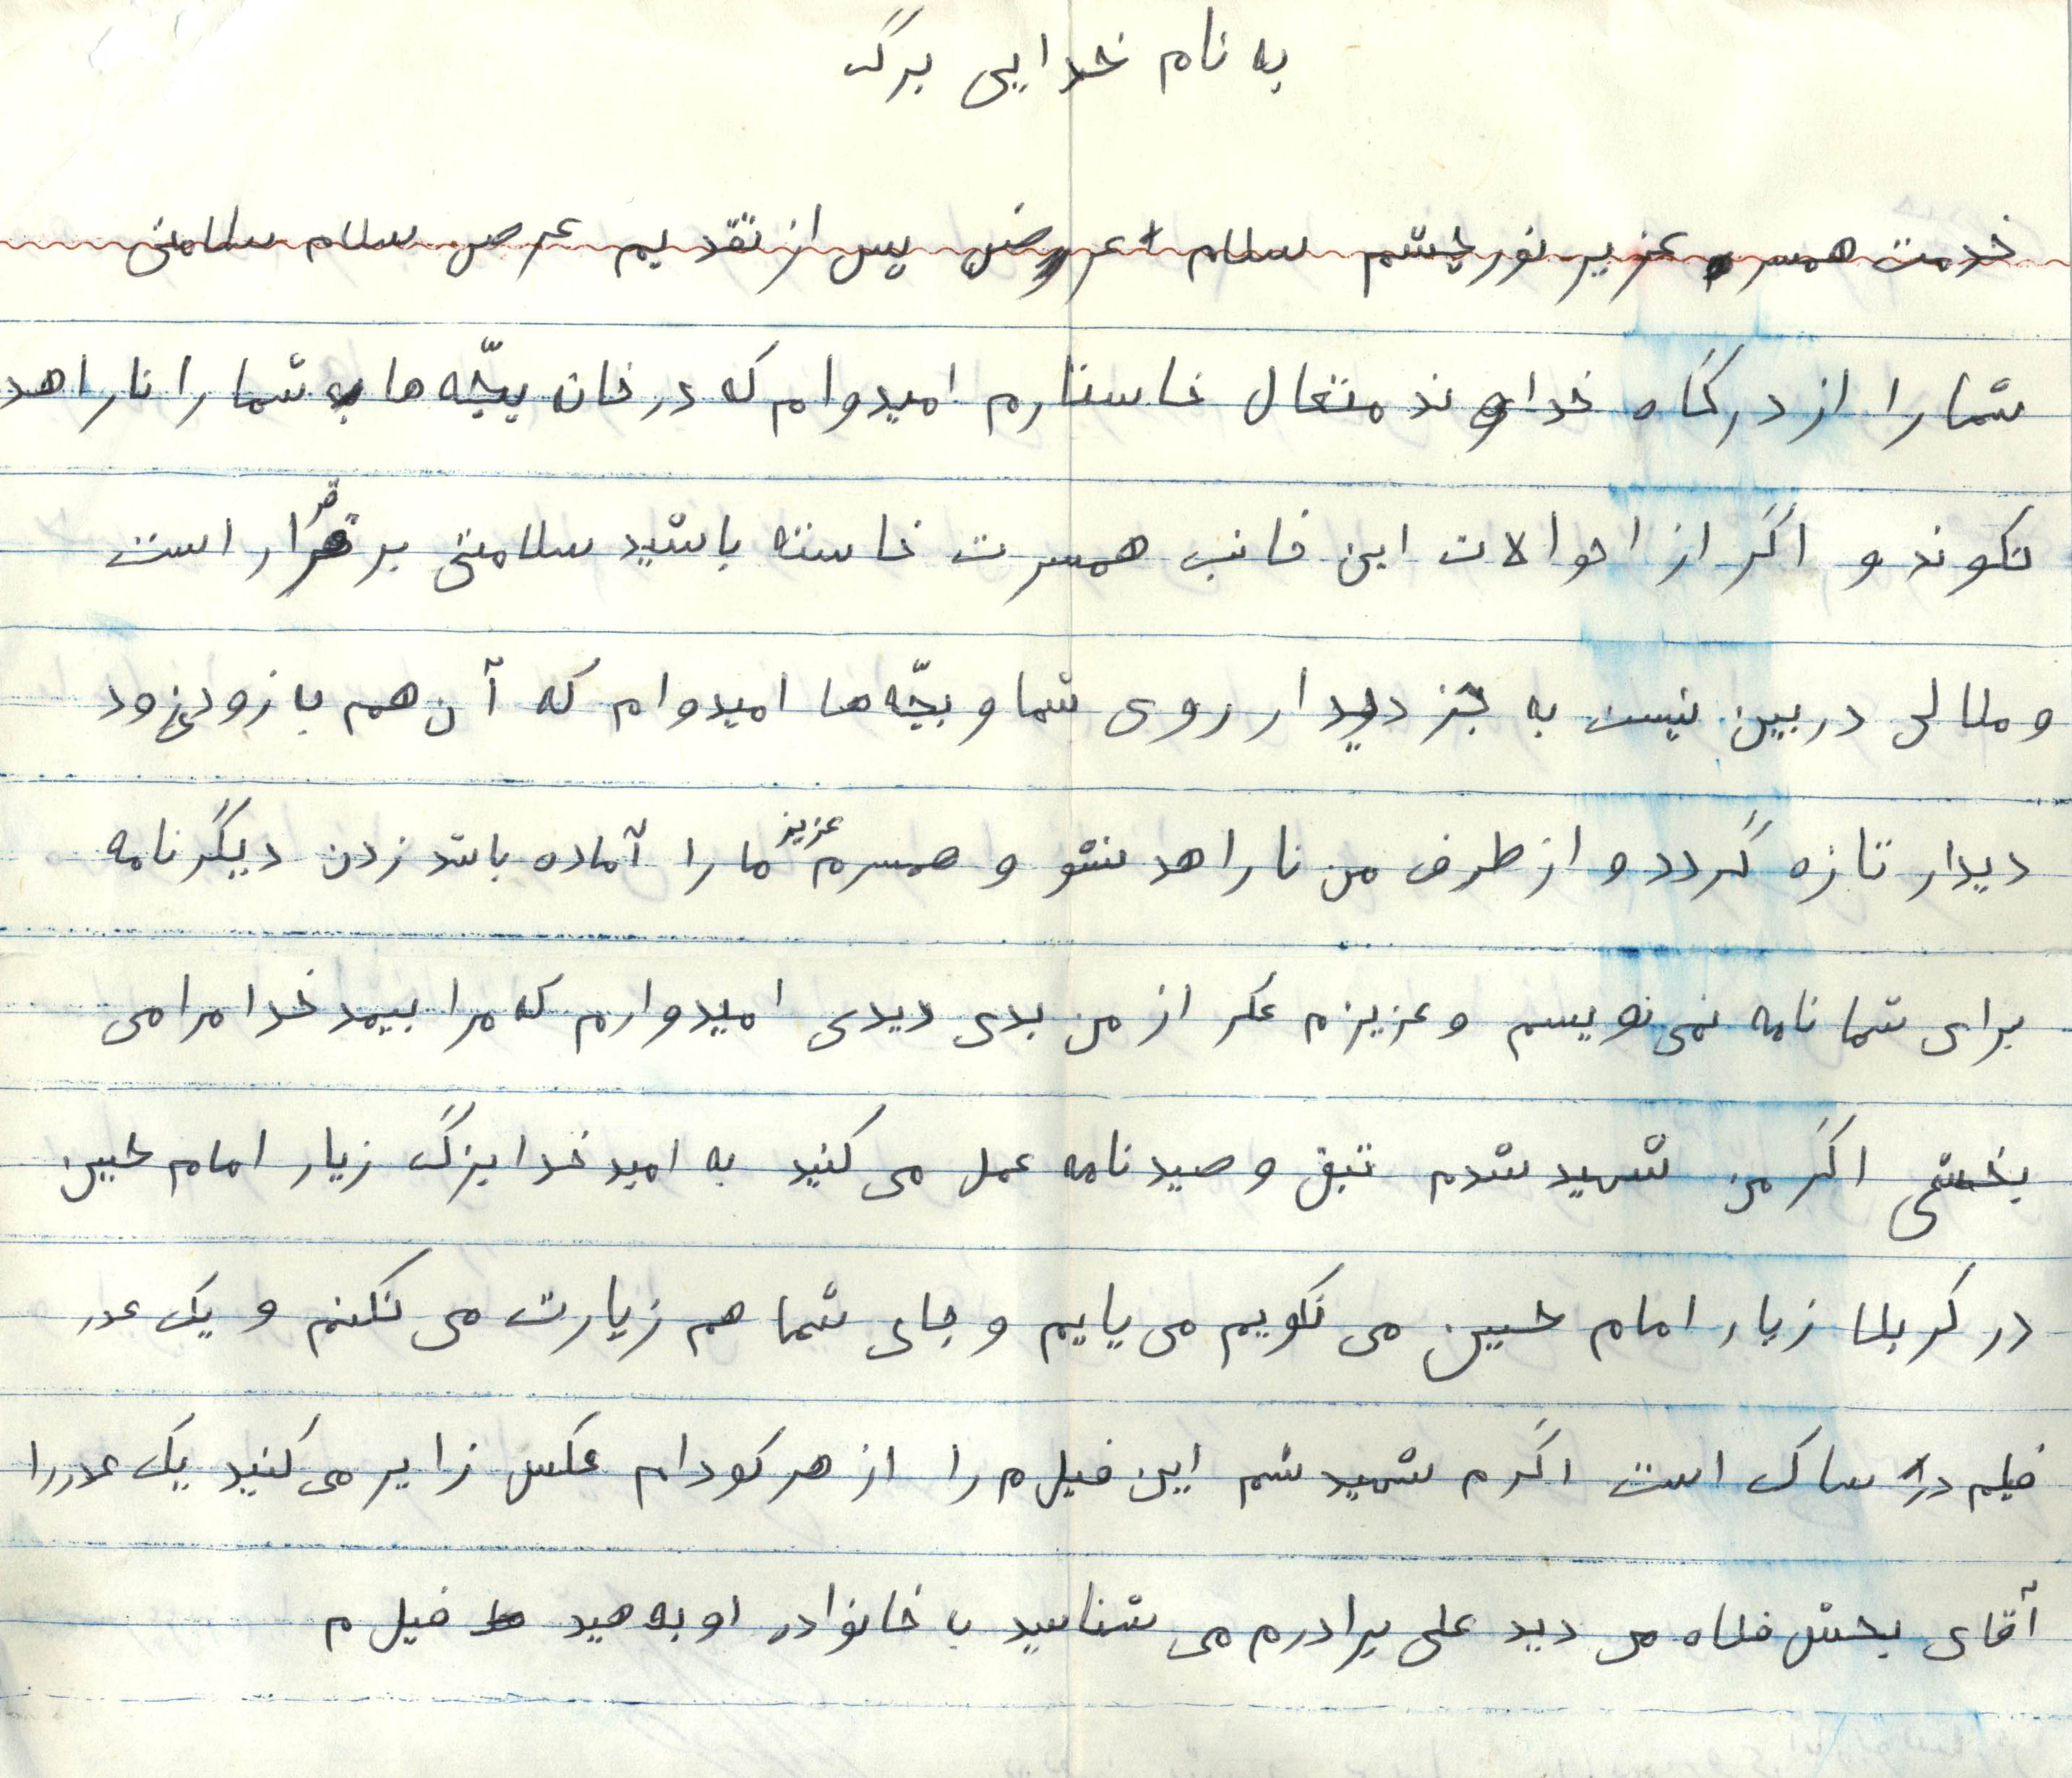 به نام خدایی برگ
خدمت همسر عزیر نور چشم سلام عروض پس از تقدیم عرص سلام سلامتی
شما را از درگاه خداوند متعال خاستارم امیدوام که در خان بچّه ها شما را ناراهد
نکوند و اگر از احوالات این فانب همسرت خاسته باشید سلامتی بر قرار است
و ملالی در بین نیست به جز دیدار روی شما و بچّه ها امیدوام که آن هم با زودی زود
دیدار تازه گردد و از طرف من ناراهد نشو و همسرم عزیز ما را آماده باشد زدن دیگر نامه
برای شما نامه نمی نویسم و عزیزم عگر از من بدی دیدی امیدوارم که مرا ببمد خدا مرا می
بخشی اگر من شهید شدم تبق وصید نامه عمل می کنید به امید خدا بزرگ زیار امام حسین
در کربلا زیار امام حسین می نکویم می یایم و جای شما هم زیارت می نکنم و یک عدر
فیلم در ساک است اگرم شهید شم این فیلم را از هر کودام عکس زایر می کنید یک عدررا
آقای بخش فلاه می دید علی برادرم می شناسید با خانوادر او به هید فیلم